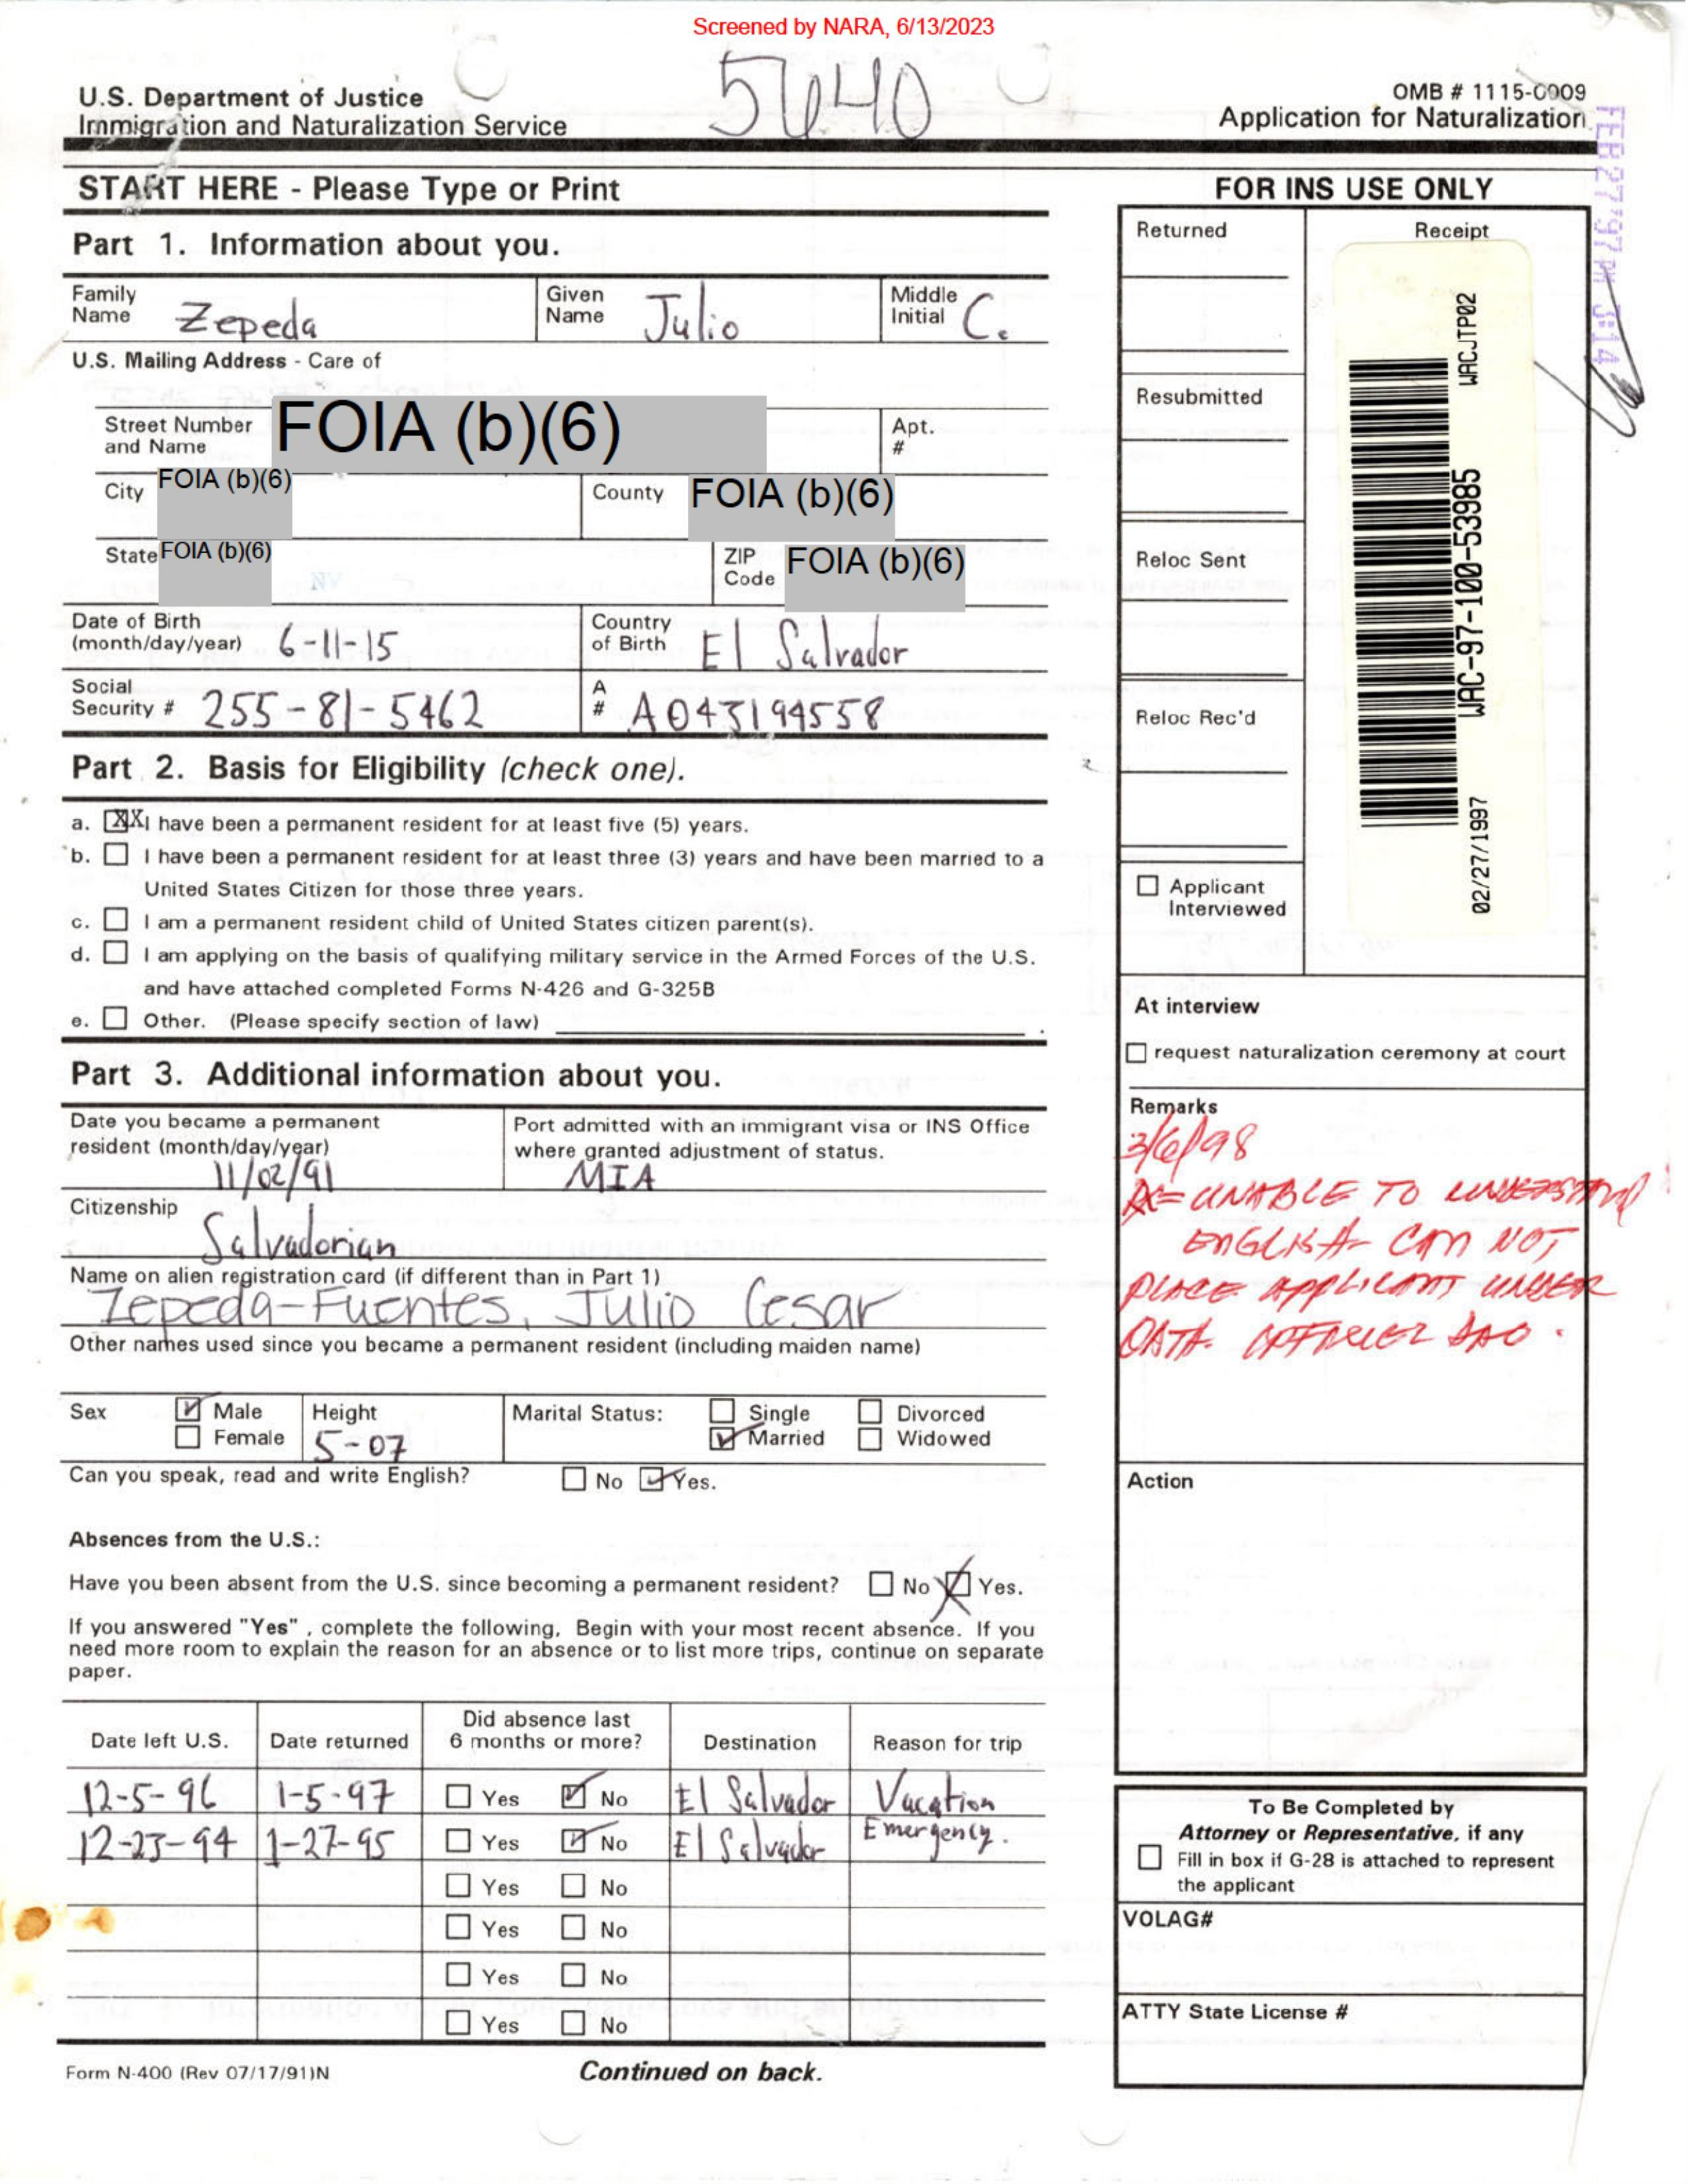 Screened by NARA, 6/13/2023
5640
U.S. Department of Justice
Immigration and Naturalization Service
OMB # 1115-0009
Application for Naturalization
FEB27'97 PM 3:14
START HERE - Please Type or Print
Part 1. Information about you.
Family Name Zepeda
Given Name Julio
Middle Initial C.
U.S. Mailing Address - Care of
Street Number and Name FOIA (b)(6)
Apt. #
City FOIA (b)(6)
County FOIA (b)(6)
State FOIA (b)(6)
ZIP Code FOIA (b)(6)
Date of Birth (month/day/year) 6-11-15
Country of Birth El Salvador
Social Security # 255-81-5462
A # A043194558
Part 2. Basis for Eligibility (check one).
a. XX I have been a permanent resident for at least five (5) years.
b. I have been a permanent resident for at least three (3) years and have been married to a
United States Citizen for those three years.
c. I am a permanent resident child of United States citizen parent(s).
d. I am applying on the basis of qualifying military service in the Armed Forces of the U.S.
and have attached completed Forms N-426 and G-325B
e. Other. (Please specify section of law)
Part 3. Additional information about you.
Date you became a permanent resident (month/day/year)
11/02/91
Port admitted with an immigrant visa or INS Office where granted adjustment of status.
MIA
Citizenship
Salvadorian
Name on alien registration card (if different than in Part 1)
Zepeda-Fuentes, Julio Cesar
Other names used since you became a permanent resident (including maiden name)
Sex Male Female
Height 5-07
Marital Status: Single Married Divorced Widowed
Can you speak, read and write English? No Yes.
Absences from the U.S.:
Have you been absent from the U.S. since becoming a permanent resident? No Yes.
If you answered "Yes" , complete the following. Begin with your most recent absence. If you
need more room to explain the reason for an absence or to list more trips, continue on separate
paper.
Date left U.S. Date returned Did absence last 6 months or more? Destination Reason for trip
12-5-96 1-5-97 Yes No El Salvador Vacation
12-23-94 1-27-95 Yes No El Salvador Emergency.
Yes No
Yes No
Yes No
Yes No
Form N-400 (Rev 07/17/91)N
Continued on back.
FOR INS USE ONLY
Returned
Receipt
Resubmitted
Reloc Sent
Reloc Rec'd
02/27/1997 WAC-97-100-53985 WACJTP02
Applicant Interviewed
At interview
request naturalization ceremony at court
Remarks
3/6/98
UNABLE TO UNDERSTAND
ENGLISH CAN NOT
PLACE APPLICANT UNDER
OATH. OFFICER
Action
To Be Completed by
Attorney or Representative, if any
Fill in box if G-28 is attached to represent
the applicant
VOLAG#
ATTY State License #